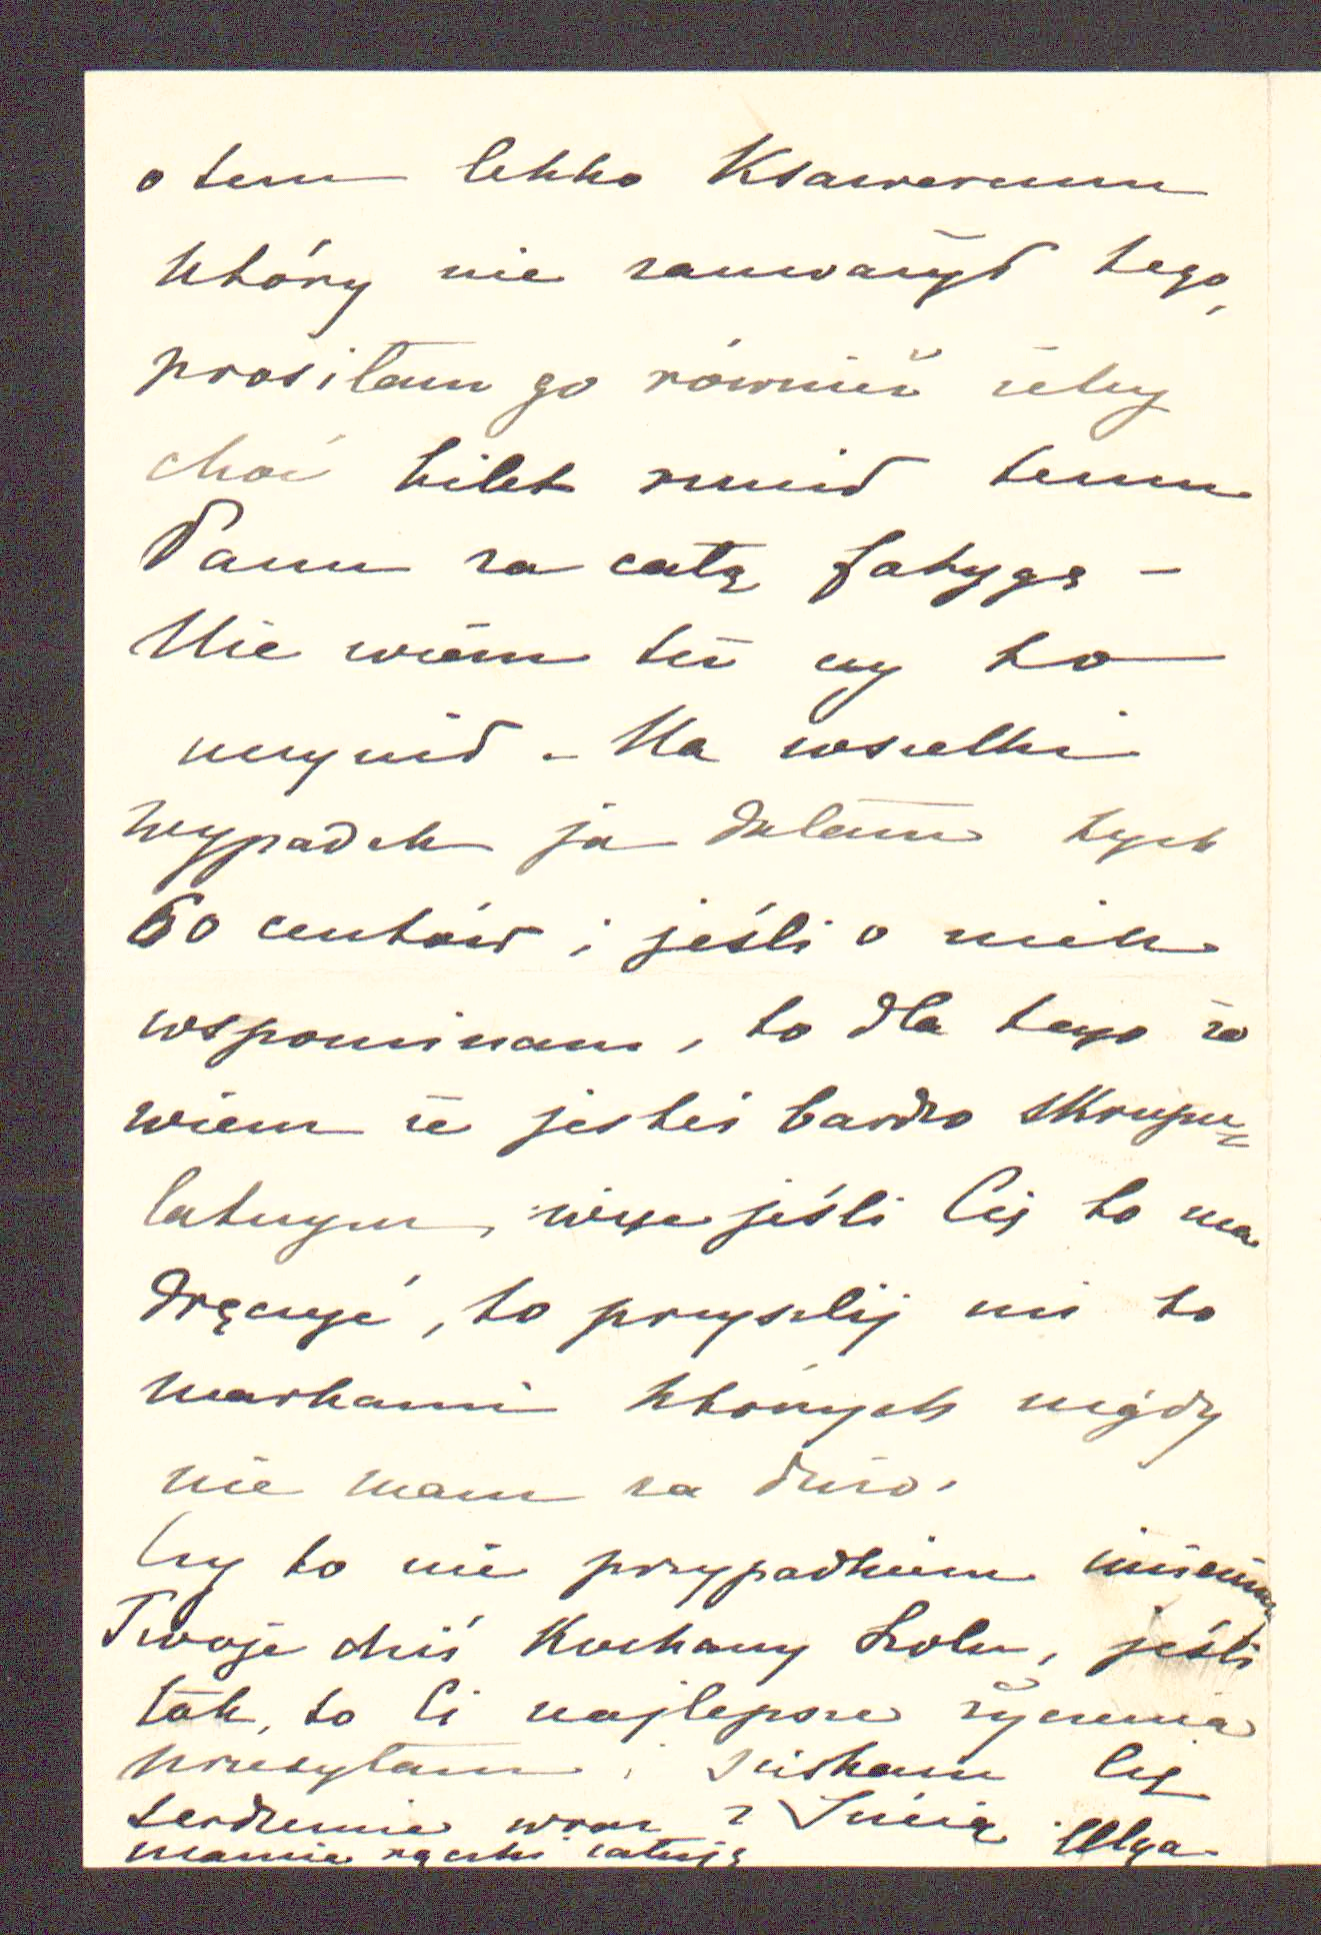 o tem lekko Ksaweremu
który nie zauważył tego,
prosiłam go również żeby
choć bilet rzucił temu
Panu za całą fatygę –
Nie wiem też czy to
uczynił – Na wszelki
wypadek ja dałam tych
60 centów i jeśli o nich
wspominam, to dla tego że
wiem że jesteś bardzo skrupu=
latnym, więc jeśli Cię to ma
dręczyć, to przyszlij mi to
markami których nigdy
nie mam za dużo.
Czy to nie przypadkiem imieniny
Twoje dziś Kochany Lolu, jeśli
tak, to Ci najlepsze życzenia
przesyłam i ściskam Cię
serdecznie wraz z
mamie rączki całuję Olga